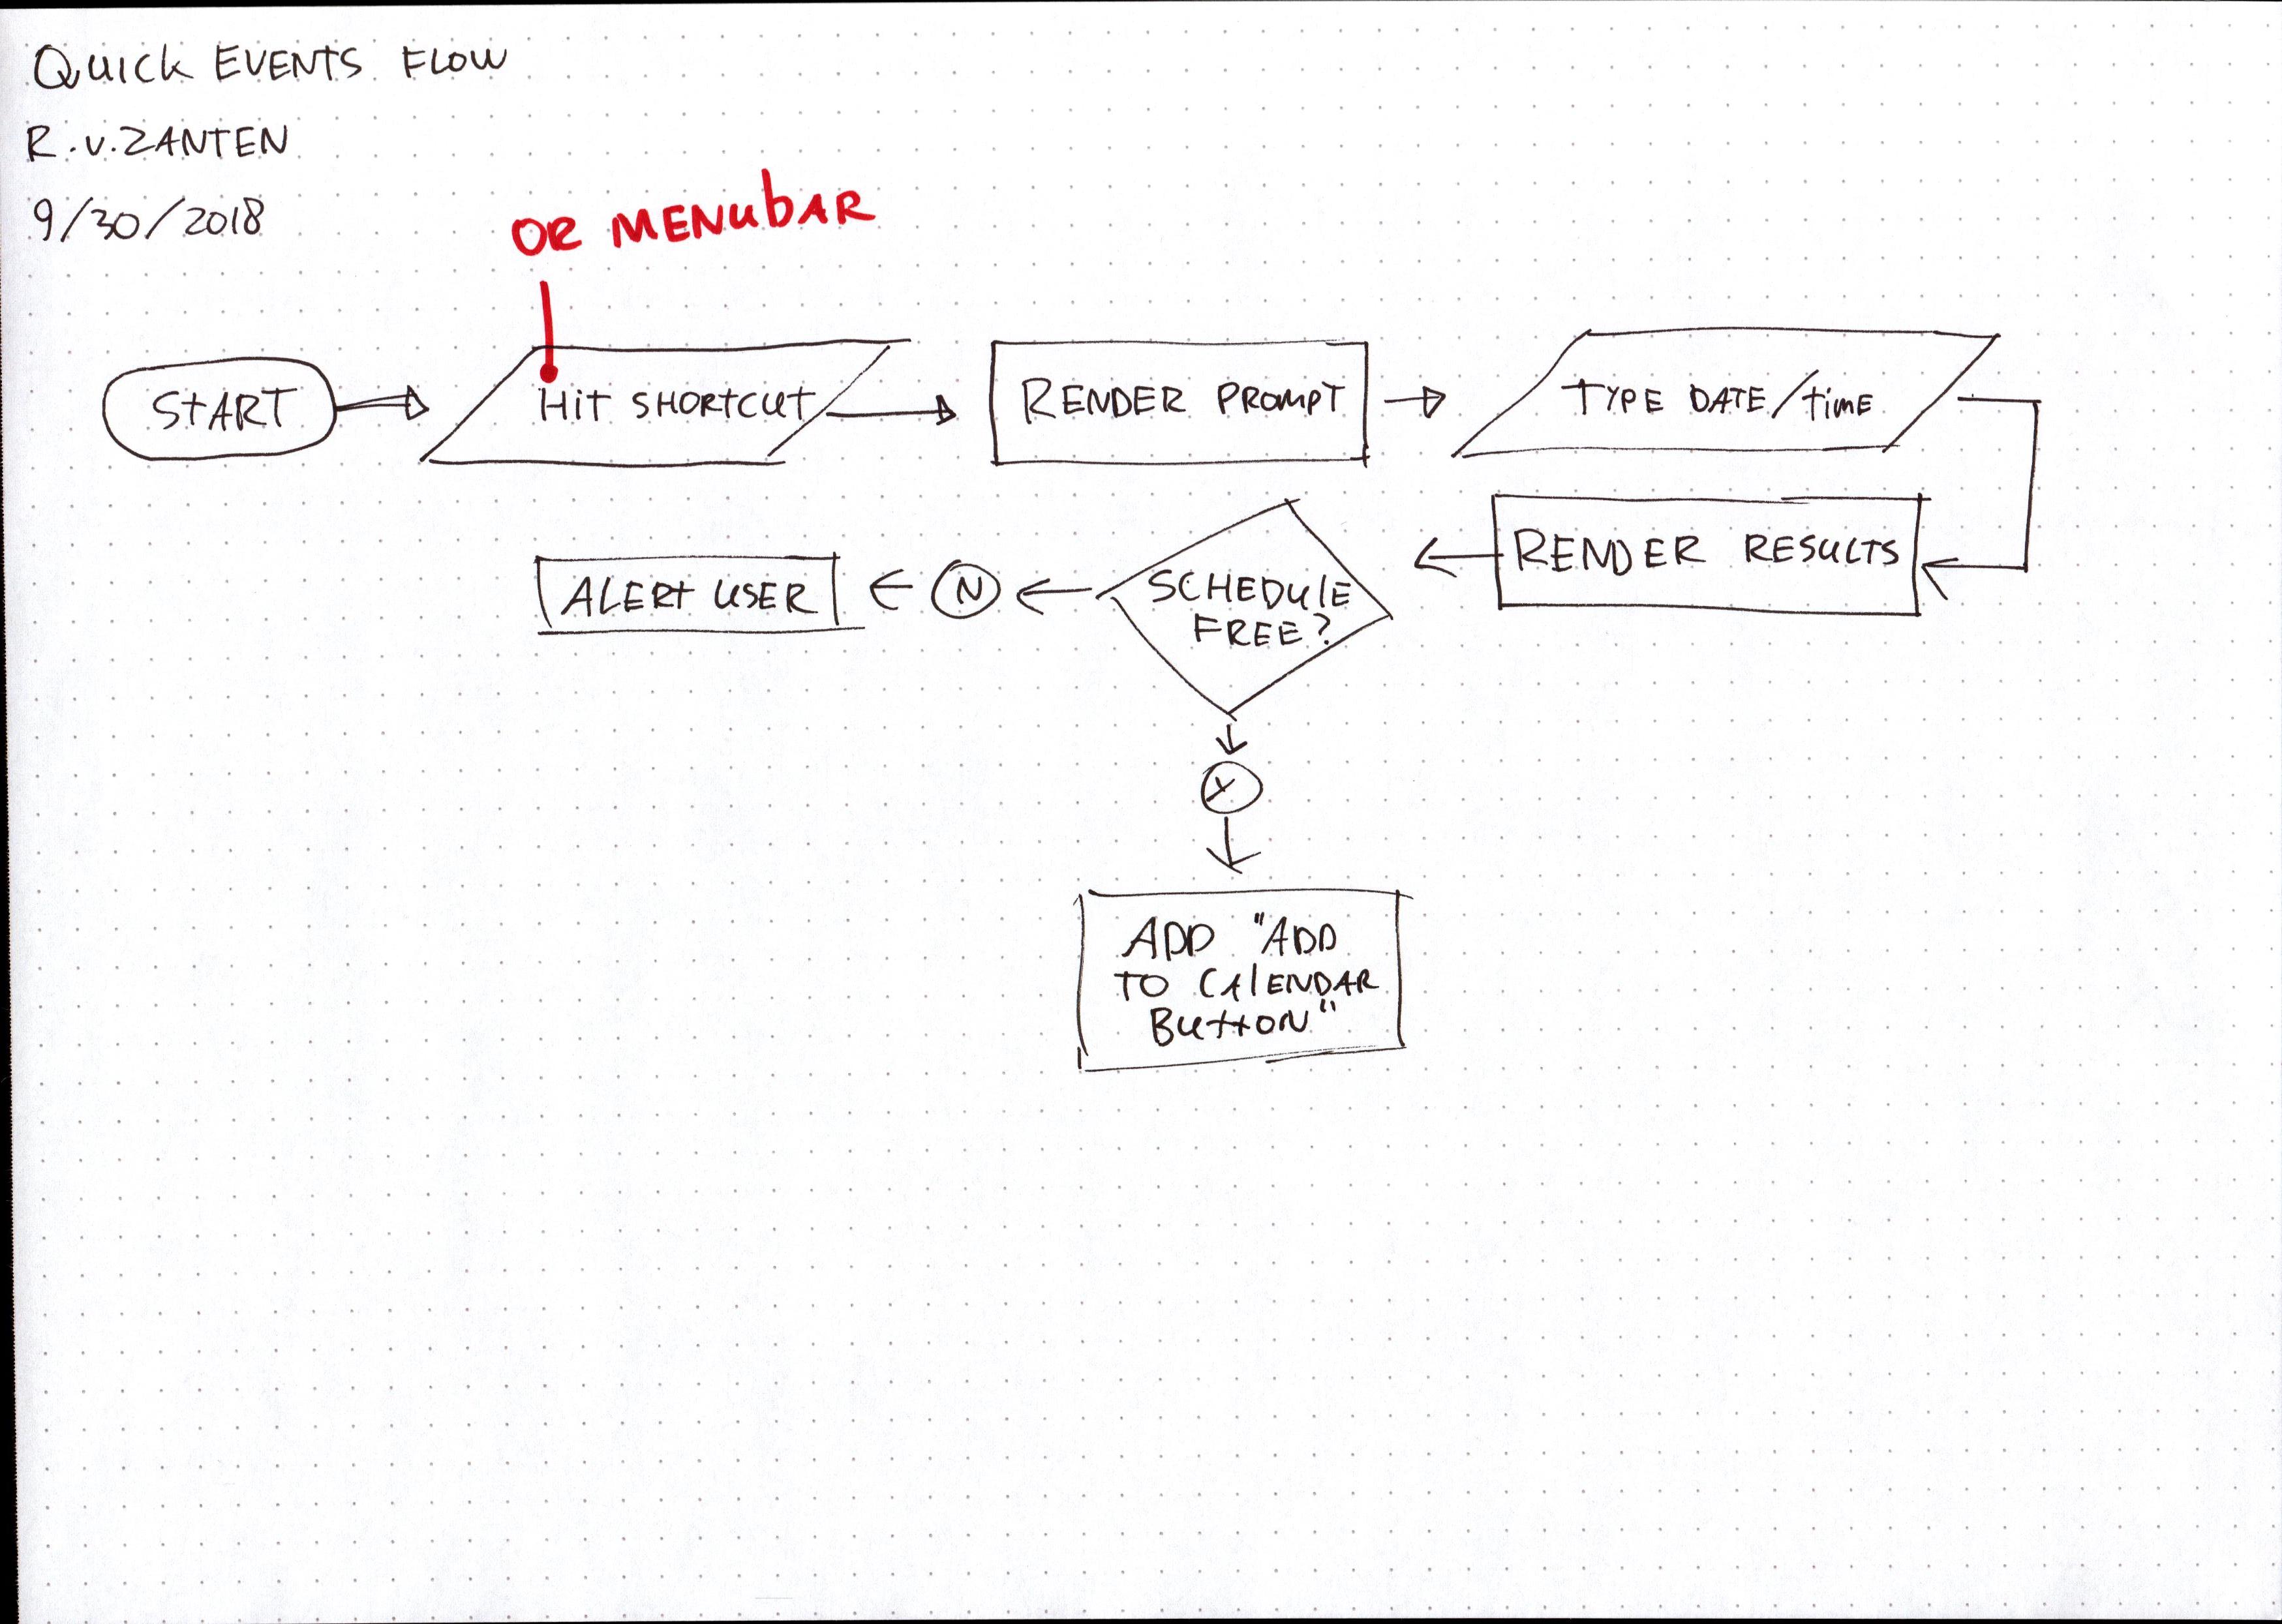 Quick EVENTS FLOW
R.v.ZANTEN
9/30/2018
OR MENUBAR
START
Hit SHORTCUT
RENDER PROMPT
TYPE DATE/time
RENDER RESULTS
SCHEDULE
FREE?
N
ALERT USER
Y
ADD "ADD
TO CALENDAR
BUTTON"